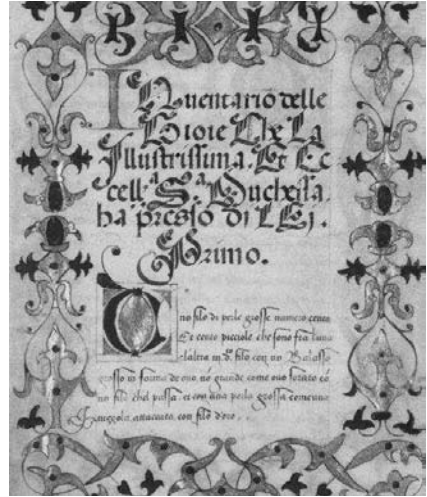 Inuentario delle
Gioie Che La
Illustrissima. Et Ec
cell.ª S.ª Duchessa.
ha presso di LEi.
Primo.
Vno filo di perle grosse numero cento
Et cento picciole che sono fra luna
e laltra in d.º filo con un Balasso
grosso in forma de ouo, nó grande come ouo forato có
un filo chel passa. et con una perla grossa come una
attaccato con filo d'oro.